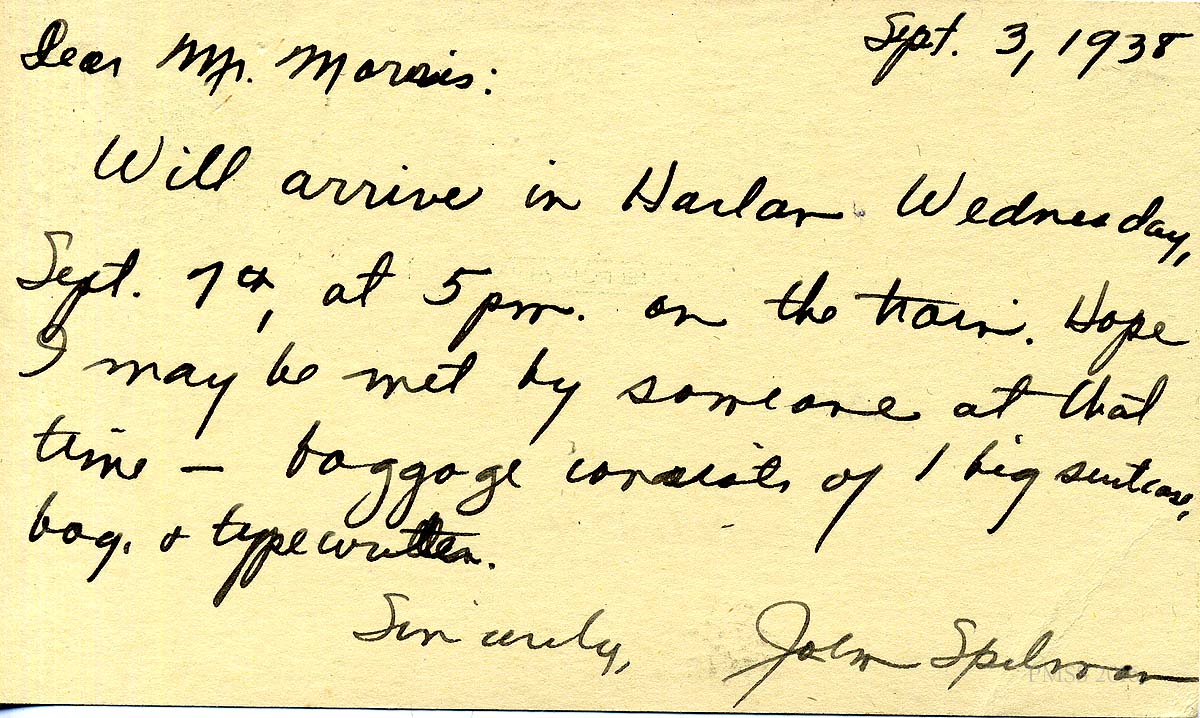 Sept. 3, 1938
Dear Mr. Morris:
Will arrive in Harlan Wednesday,
Sept. 7th, at 5 pm. on the train. Hope
I may be met by someone at that
time — baggage consists of 1 big suitcase,
bag, & typewriter.
Sincerely, John Spelman